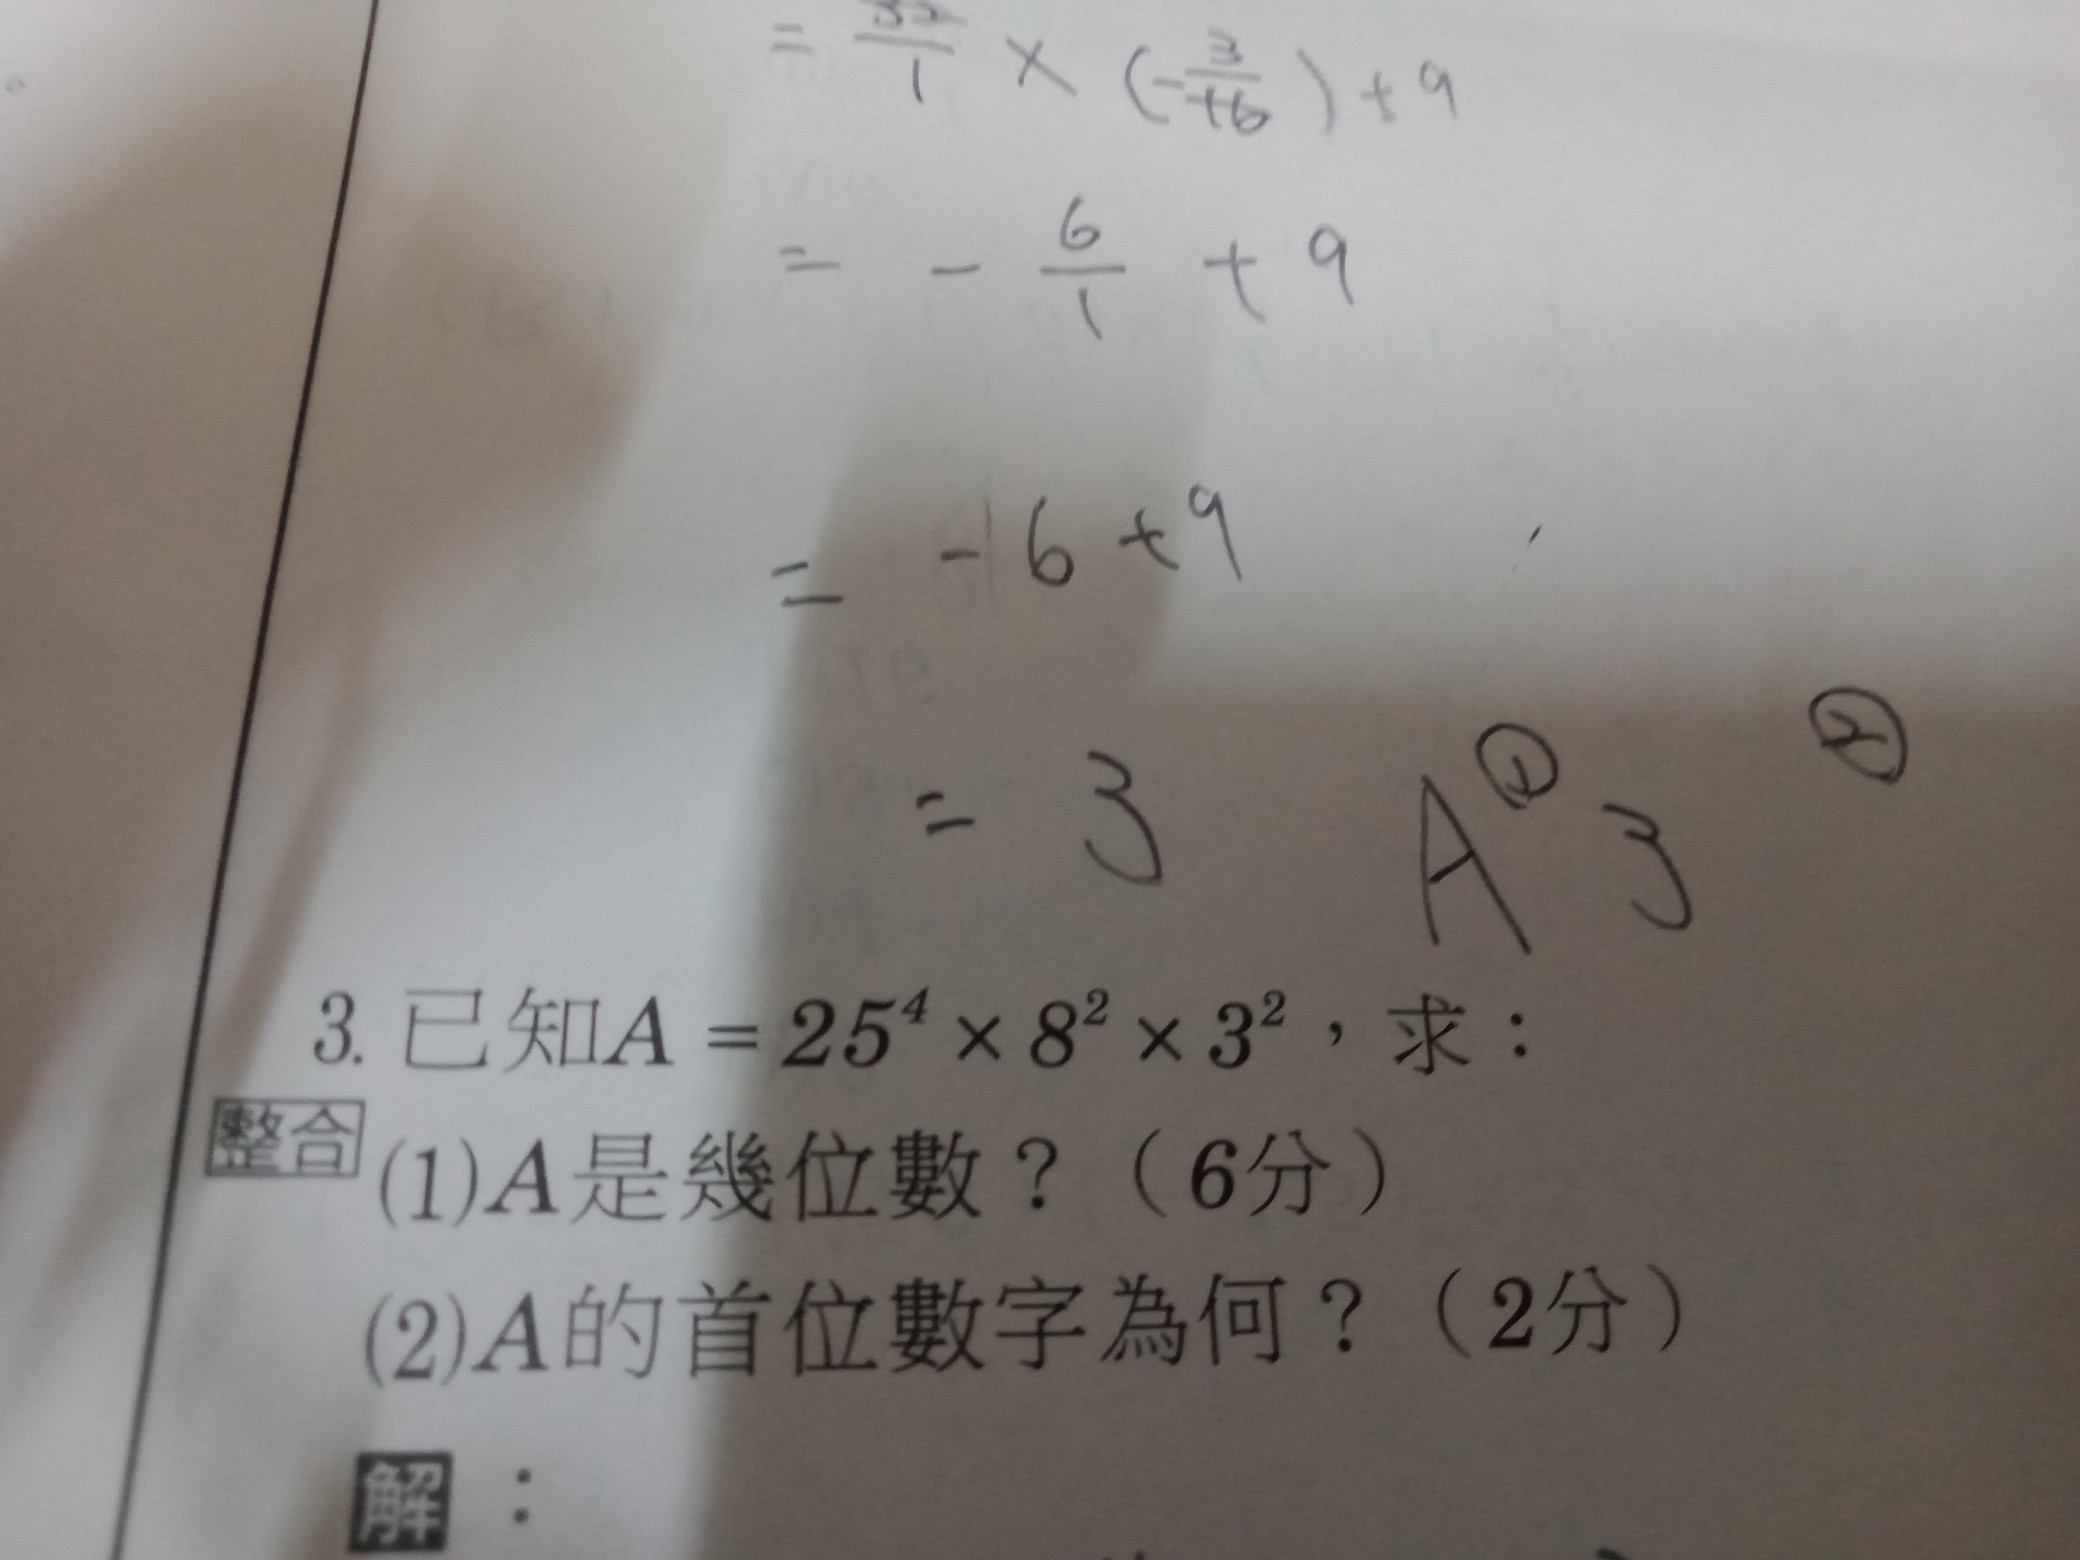 × (- 3/16) + 9
= - 6/1 + 9
= - 6 + 9
= 3 A① 3 ②
3. 已知A = 25⁴ × 8² × 3²，求：
整合 (1)A是幾位數？（6分）
(2)A的首位數字為何？（2分）
解：